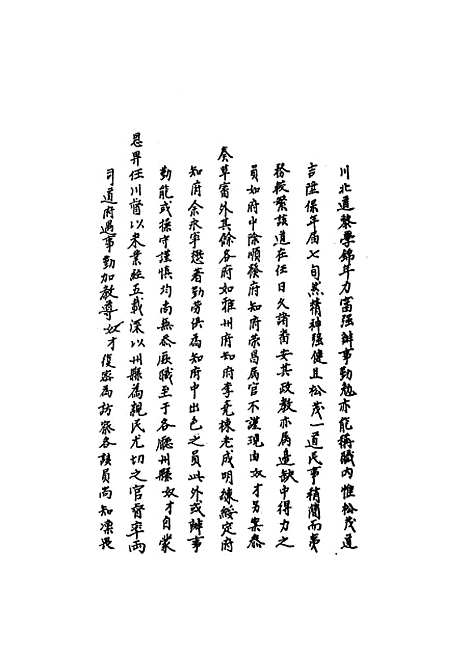 川北道黎學錦年力富强辦事勤勉亦能稱職内惟松茂道
吉陞保年届七旬然精神强健且松茂一道民事稍簡而夷
務較繁該道在任日久諸番安其政教亦属邊缺中得力之
員如府中除順發府知府榮昌居官不謹現由奴才另案叅
奏革審外其餘各府如雅州府知府李堯棟老成明練綏定府
知府余永寧懋著勤勞俱為知府中出色之員此外或辦事
勤能或操守謹慎均尚無忝厥職至于各廳州縣奴才自蒙
恩畀任川督以来業經五載深以州縣為親民尤切之官督率两
司道府遇事勤加教導奴才復密為訪察各該員尚知凛畏